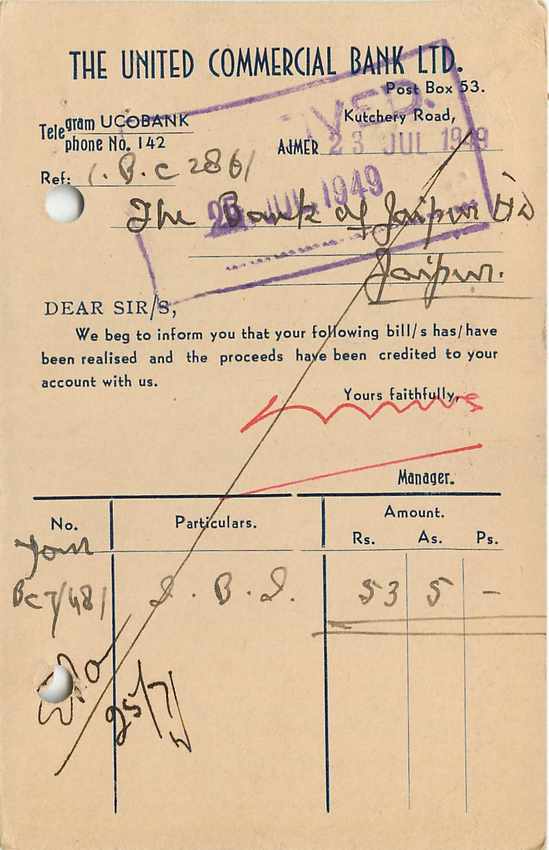 THE UNITED COMMERCIAL BANK LTD.
Post Box 53.
Telegram UCOBANK
Telephone No. 142
Kutchery Road,
AJMER 23 JUL 1949
Ref: I.B.C 2861
25 JUL 1949
The Bank of Jaipur Ltd
Jaipur.
DEAR SIR/S,
We beg to inform you that your following bill/s has/have
been realised and the proceeds have been credited to your
account with us.
Yours faithfully,
Manager.
No. Particulars. Amount.
Rs. As. Ps.
Your
BC 7/481 I.B.I. 53 5 -
25/7/